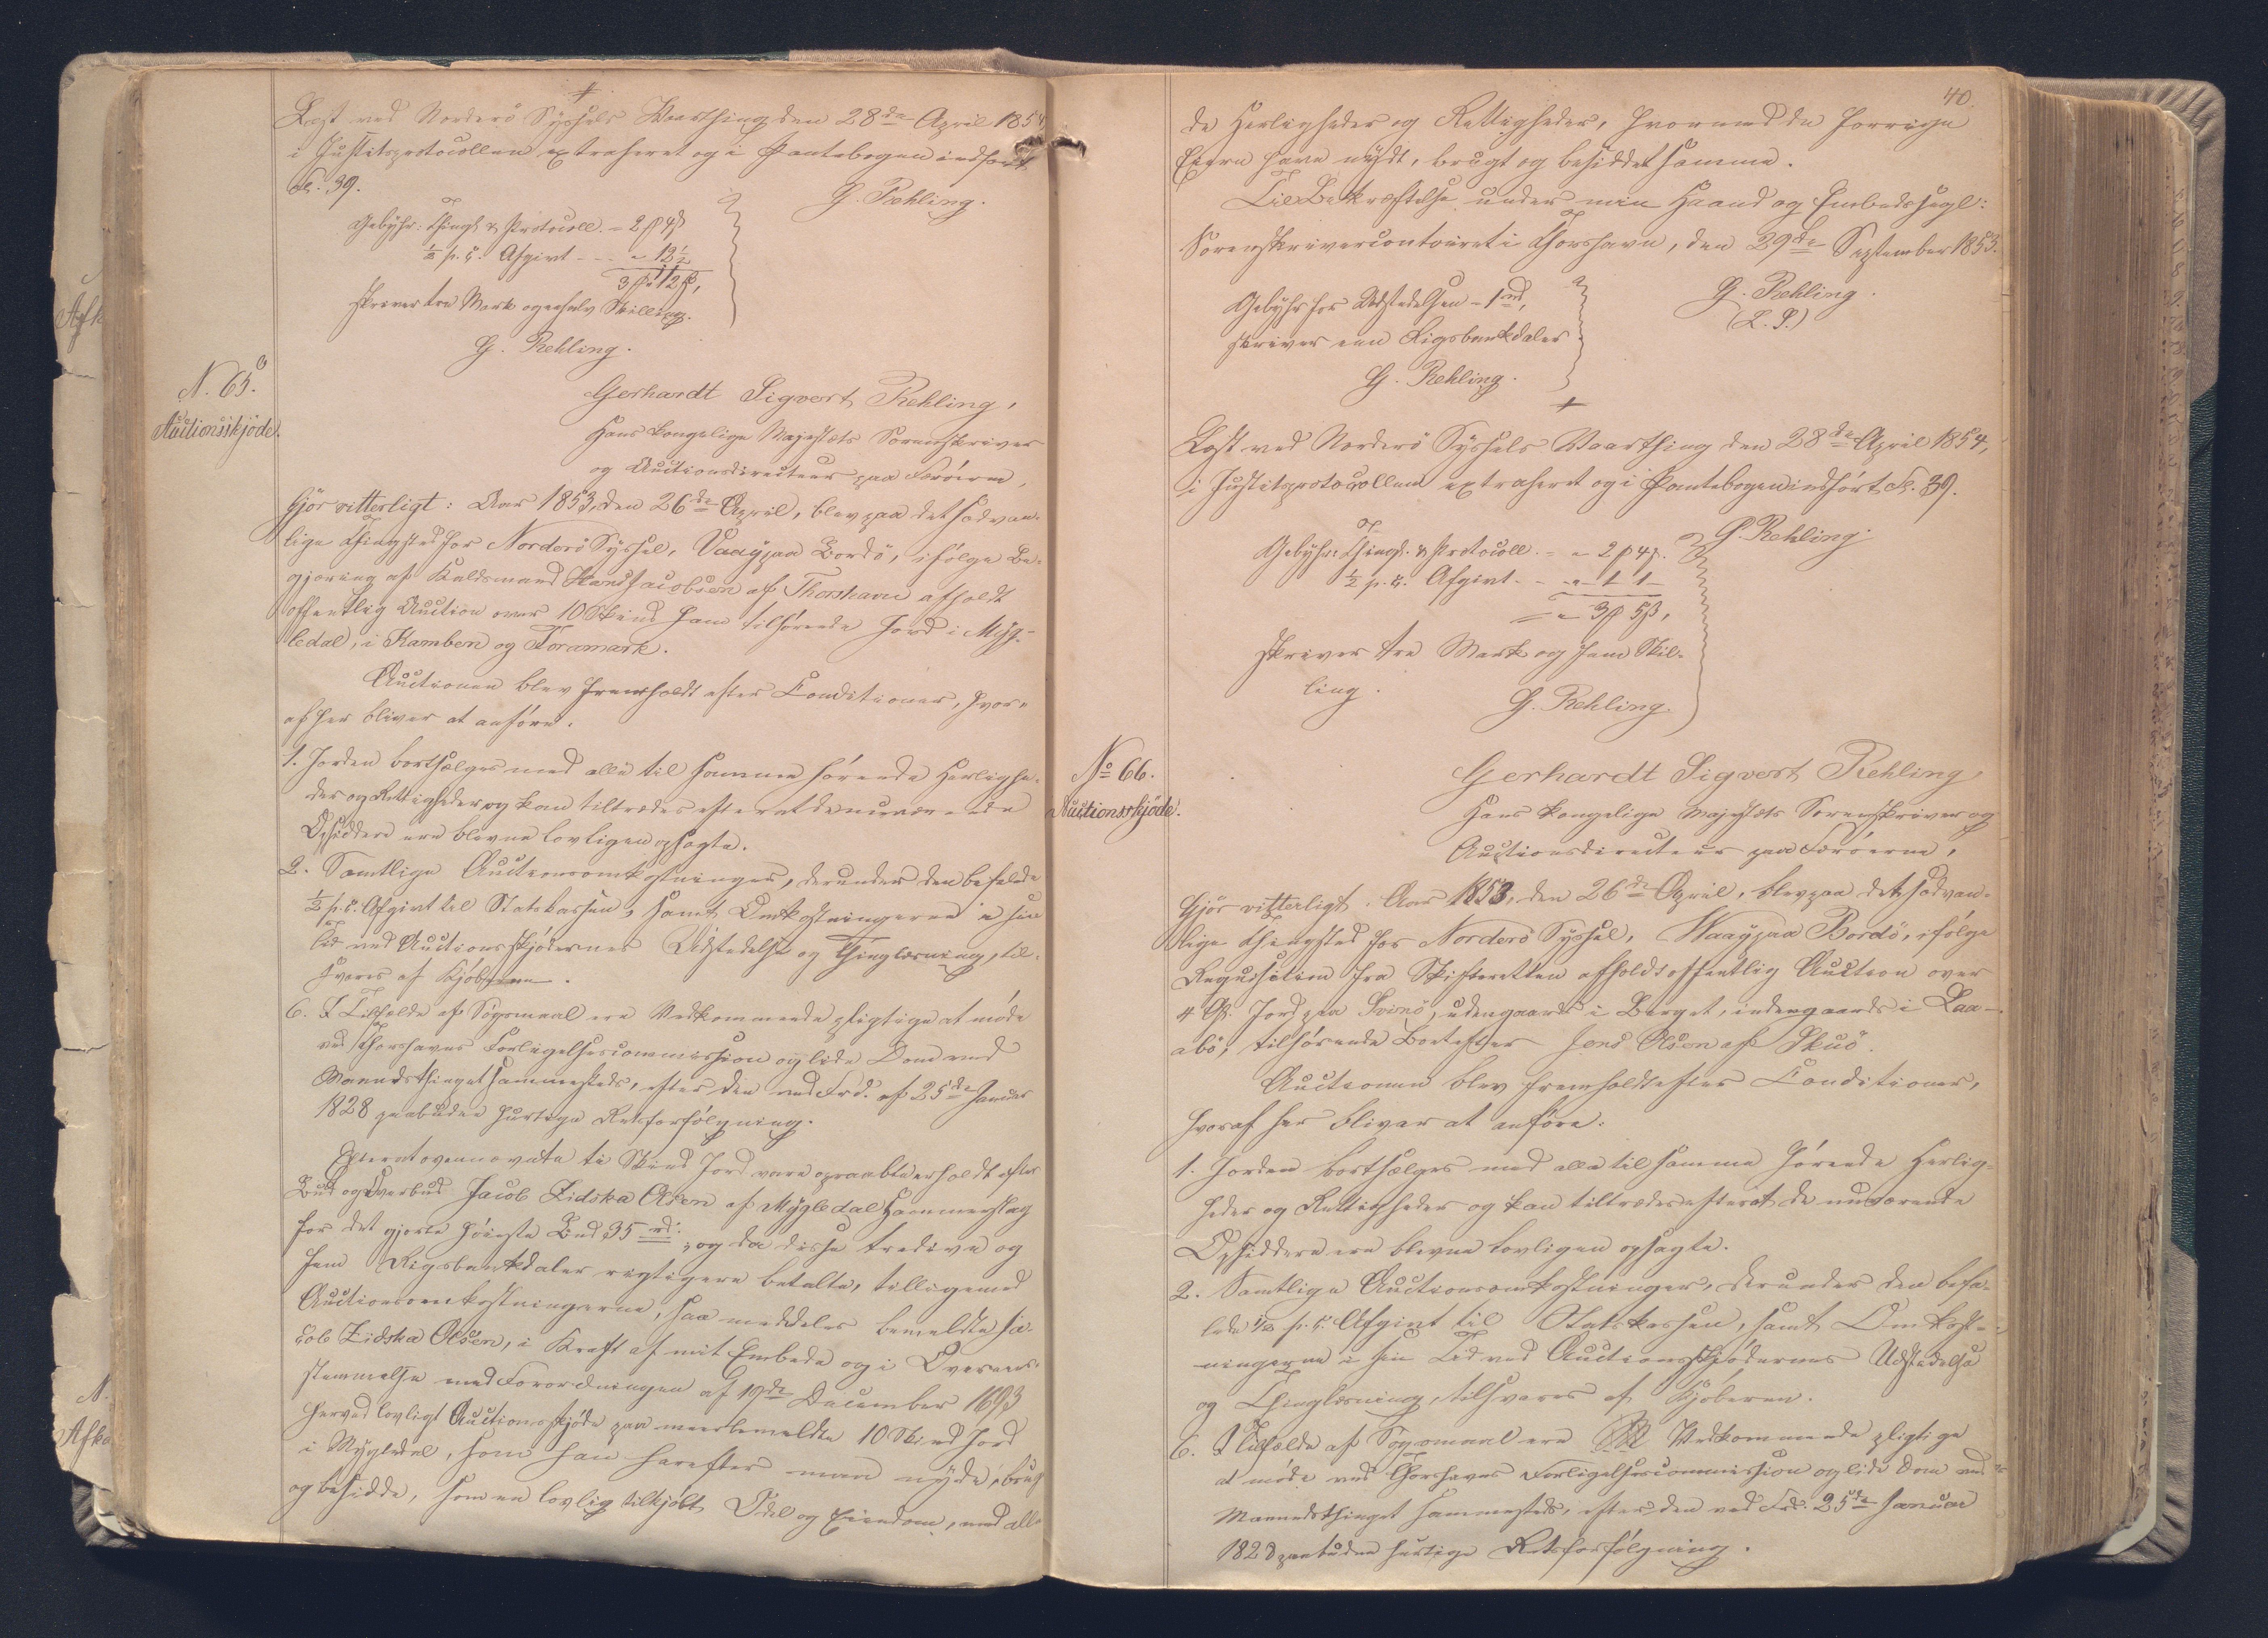 +
Læst ved Norderö Syssels Vaarthing den 28de April 1854
i Justitsprotocollen extraheret og i Pantebogen indført
Fol. 39.
G. Rehling.
Gebyhr: Thingl. & Protocoll. - 2 ß 4 ß
1/2 p. C. Afgivt - - - " 12 1/2
skriver tre Mark og en halv Skilling.
G. Rehling.
N. 65.
Auctionsskjöde.
Gerhardt Sigvert Rehling,
Hans kongelige Majestæts Sorenskriver
og Auctionsdirecteur paa Færöerne,
Gjör vitterligt: Aar 1853, den 26de April, blev paa det sædvan-
lige Thingsted for Norderö Syssel, Vaag paa Bordö, ifølge Be-
gjæring af Kuldsmand Hans Jacobsen af Thorshavn afholdt
offentlig Auction over 10 Skind ham tilhørende Jord i Myg-
ledal, i Kamben og Foramark.
Auctionen blev fremholdt efter Conditioner, hvor-
af her bliver at anføre.
1. Jorden bortsælges med alle til samme hörende Herlighe-
der og Rettigheder og kan tiltrædes efterat de nuværende
Opsiddere ere blevne lovligen opsagte.
2. Samtlige Auctionsomkostninger, derunder den befalede
1/2 p. C. Afgivt til Statskassen, samt Omkostningerne i sin
Tid ved Auctionsskjödernes Udstedelse og Thinglæsning, til-
svares af Kjöberne.
6. I Tilfælde af Søgsmaal ere Vedkommende pligtige at möde
ved Thorshavns Forligelsescommission og lide Dom ved
Maanedsthinget sammesteds, efter den ved Frd. af 25de Januar
1828 paabudne hurtige Retsforfølgning.
Efterat ovennævnte ti Skind Jord vare opraabte erholdt efter
Bud og Overbud Jacob Zidska Olsen af Mygledal Hammerslag
for det gjorte höieste Bud 35 rd: og da disse tredive og
fem Rigsbankdaler rigtigen ere betalte, tilligemed
Auctionsomkostningerne, saa meddeles bemeldte Ja-
cob Zidska Olsen, i Kraft af mit Embede og i Overeens-
stemmelse med Forordningen af 19de December 1693
herved lovligt Auctionsskjöde paa meerbemeldte 10 Skind Jord
i Mygledal, som han herefter maa nyde, bruge
og besidde, som en lovlig tilkjöbt Odel og Eiendom, med alle
40.
de Herligheder og Rettigheder, hvormed de forrige
Eiere have nydt, brugt og besiddet samme.
Til Bekræftelse under min Haand og Embedssegl:
Sorenskrivercontoiret i Thorshavn, den 29de September 1853.
G. Rehling.
(L. S.)
Gebyhr for Udstedelsen - 1 rd,
skriver een Rigsbankdaler
G. Rehling.
+
Læst ved Norderö Syssels Vaarthing den 28de April 1854,
i Justitsprotocollen extraheret og i Pantebogen indfört Fol. 39.
G. Rehling.
Gebyhr: Thingl. & Protocoll. - " 2 ß 4 ß.
1/2 p. C. Afgivt. - - " 1 1 -
= " 3 ß 5 ß,
skriver tre Mark og fem Skil-
ling.
G. Rehling.
No 66.
Auctionsskjöde.
Gerhardt Sigvert Rehling,
Hans kongelige Majestæts Sorenskriver og
Auctionsdirecteur paa Færöerne,
Gjör vitterligt: Aar 1853, den 26de April, blev paa det sædvan-
lige Thingsted for Norderö Syssel, Waag paa Bordö, ifölge
Requisition fra Skifteretten afholdt offentlig Auction over
4 Jord paa Svinö, udengaards i Berget, indengaards i Laa-
abö, tilhörende Jens Olsen af Skuö.
Auctionen blev fremholdt efter Conditioner,
hvoraf her bliver at anföre:
1. Jorden bortsælges med alle til samme hörende Herlig-
heder og Rettigheder og kan tiltrædes efterat de nuværende
Opsiddere ere blevne lovligen opsagte.
2. Samtlige Auctionsomkostninger, derunder den befa-
lede 1/2 p. C. Afgivt til Statskassen, samt Omkost-
ningerne i sin Tid ved Auctionsskjödernes Udstedelse
og Thinglæsning, tilsvares af Kjöberen.
6. I Tilfælde af Søgsmaal ere Vedkommende pligtige
at möde ved Thorshavns Forligelsescommission og lide Dom ved
Maanedsthinget sammesteds, efter den ved Frd. 25de Januar
1828 paabudne hurtige Retsforfölgning.